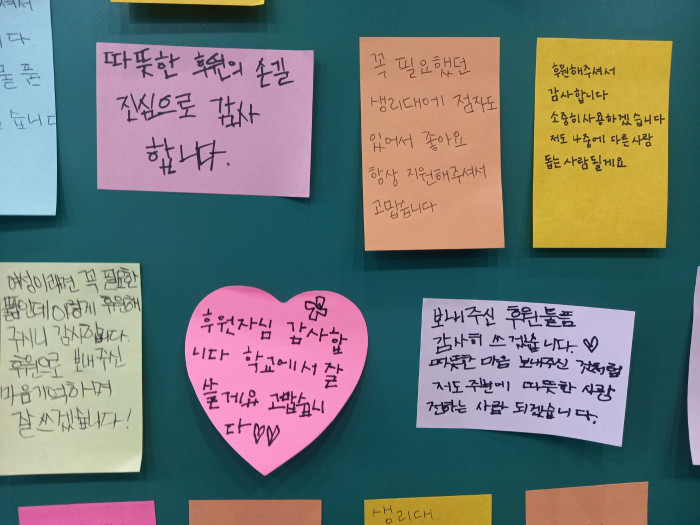 셔서
다
물품
습니다
따뜻한 후원의 손길
진심으로 감사
합니다.
꼭 필요했던
생리대에 점자도
있어서 좋아요
항상 지원해주셔서
고맙습니다
후원해주셔서
감사합니다
소중히사용하겠습니다
저도 나중에 다른사람
돕는사람될게요
여성이라면 꼭 필요한
품인데 이렇게 후원해
주시니 감사합니다.
후원으로 보내주신
마음기억하며
잘 쓰겠습니다!
후원자님 감사합
니다 학교에서 잘
쓸게요 고맙습니
다♡♡
보내주신 후원물품
감사히 쓰겠습니다. ♡
따뜻한 마음 보내주신 것처럼
저도 주변에 따뜻한 사랑
전하는 사람 되겠습니다.
생리대